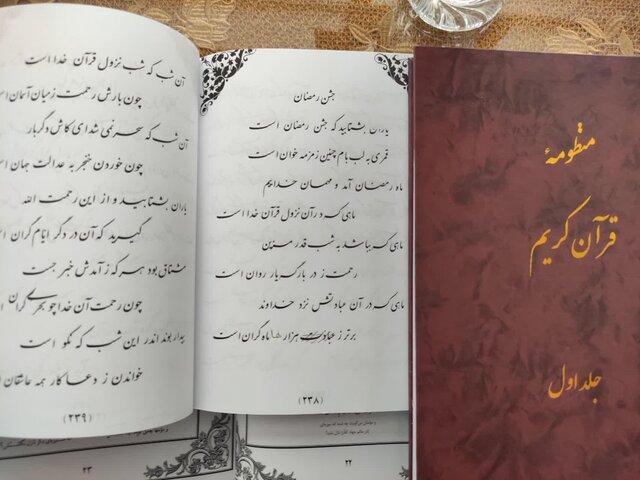 جشن رمضان
یاران بشتابید که جشن رمضان است
قمری به لب بام چنین زمزمه خوان است
ماه رمضان آمد و مهمان خدایم
ماهی که در آن نزول قرآن خدا است
ماهی که بباشد به شب قدر مزین
رحمت ز در بارگه یار روان است
ماهی که در آن عبادتش نزد خداوند
برتر ز عبادت هزار ماه گران است
(۲۳۸)
آن شب که شب نزول قرآن خدا است
چون بارش رحمت زمین آسمان
آن شب که سحر نمی شدای کاش دگربار
چون خوردن خنجر به عدالت جهان
یاران بشتابید و از این رحمت الله
گیرید که آن در دگر ایام گران
مشتاق بود هر که ز آمدش خبر جست
چون رحمت آن خدا چو بحری گران
بیدار بوند اندر این شب که نکو است
خواندن ز دعا کار همه عاشقان
(۲۳۹)
منظومهٔ
قرآن کریم
جلد اول
۲۲
۲۳